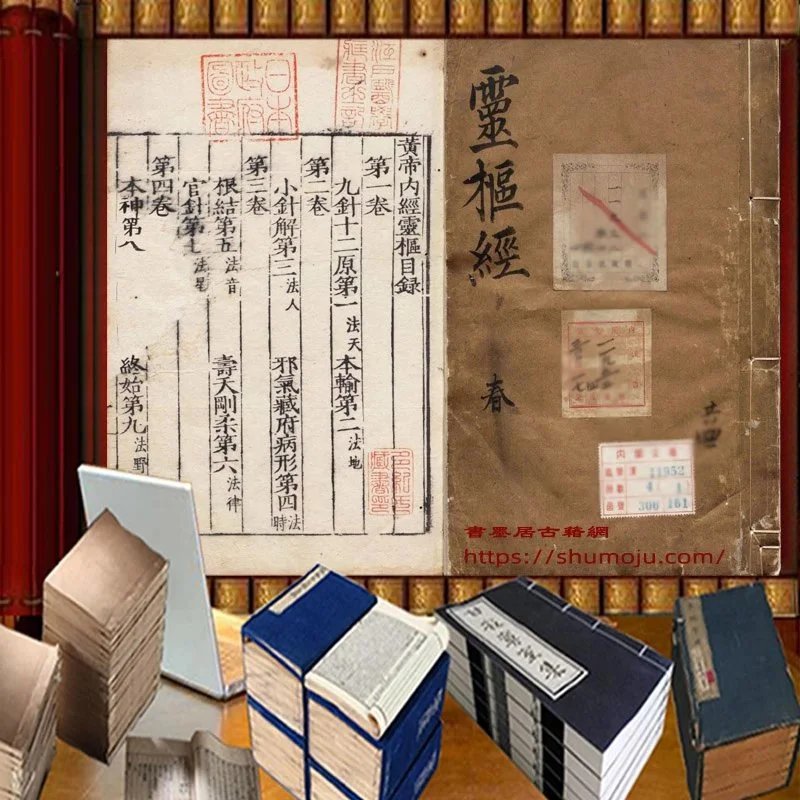 日本政府圖書
黃帝內經靈樞目錄
第一卷
九針十二原第一法天 本輸第二法地
第二卷
小針解第三法人 邪氣藏府病形第四法時
第三卷
根結第五法音 壽夭剛柔第六法律
官針第七法星
第四卷
本神第八 終始第九法野
靈樞經
春
11952
4 ( 1 )
306 161
書墨居古藉網
https://shumoju.com/